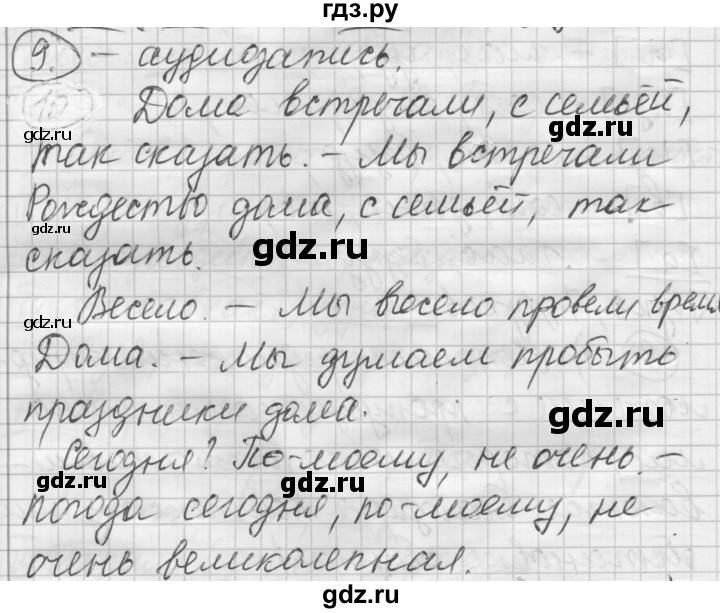 гдз.ру
9. – аудиозапись.
10 Дома встречали, с семьёй,
gdz.ru gdz.ru
так сказать. – Мы встречали
Рождество дома, с семьёй, так
gdz.ru gdz.ru
сказать.
Весело. – Мы весело провели время
gdz.ru
Дома. – Мы думаем пробыть
праздники дома.
gdz.ru
Сегодня? По-моему, не очень. –
gdz.ru
погода сегодня, по-моему, не
очень великолепная.
gdz.ru gdz.ru
gdz.ru